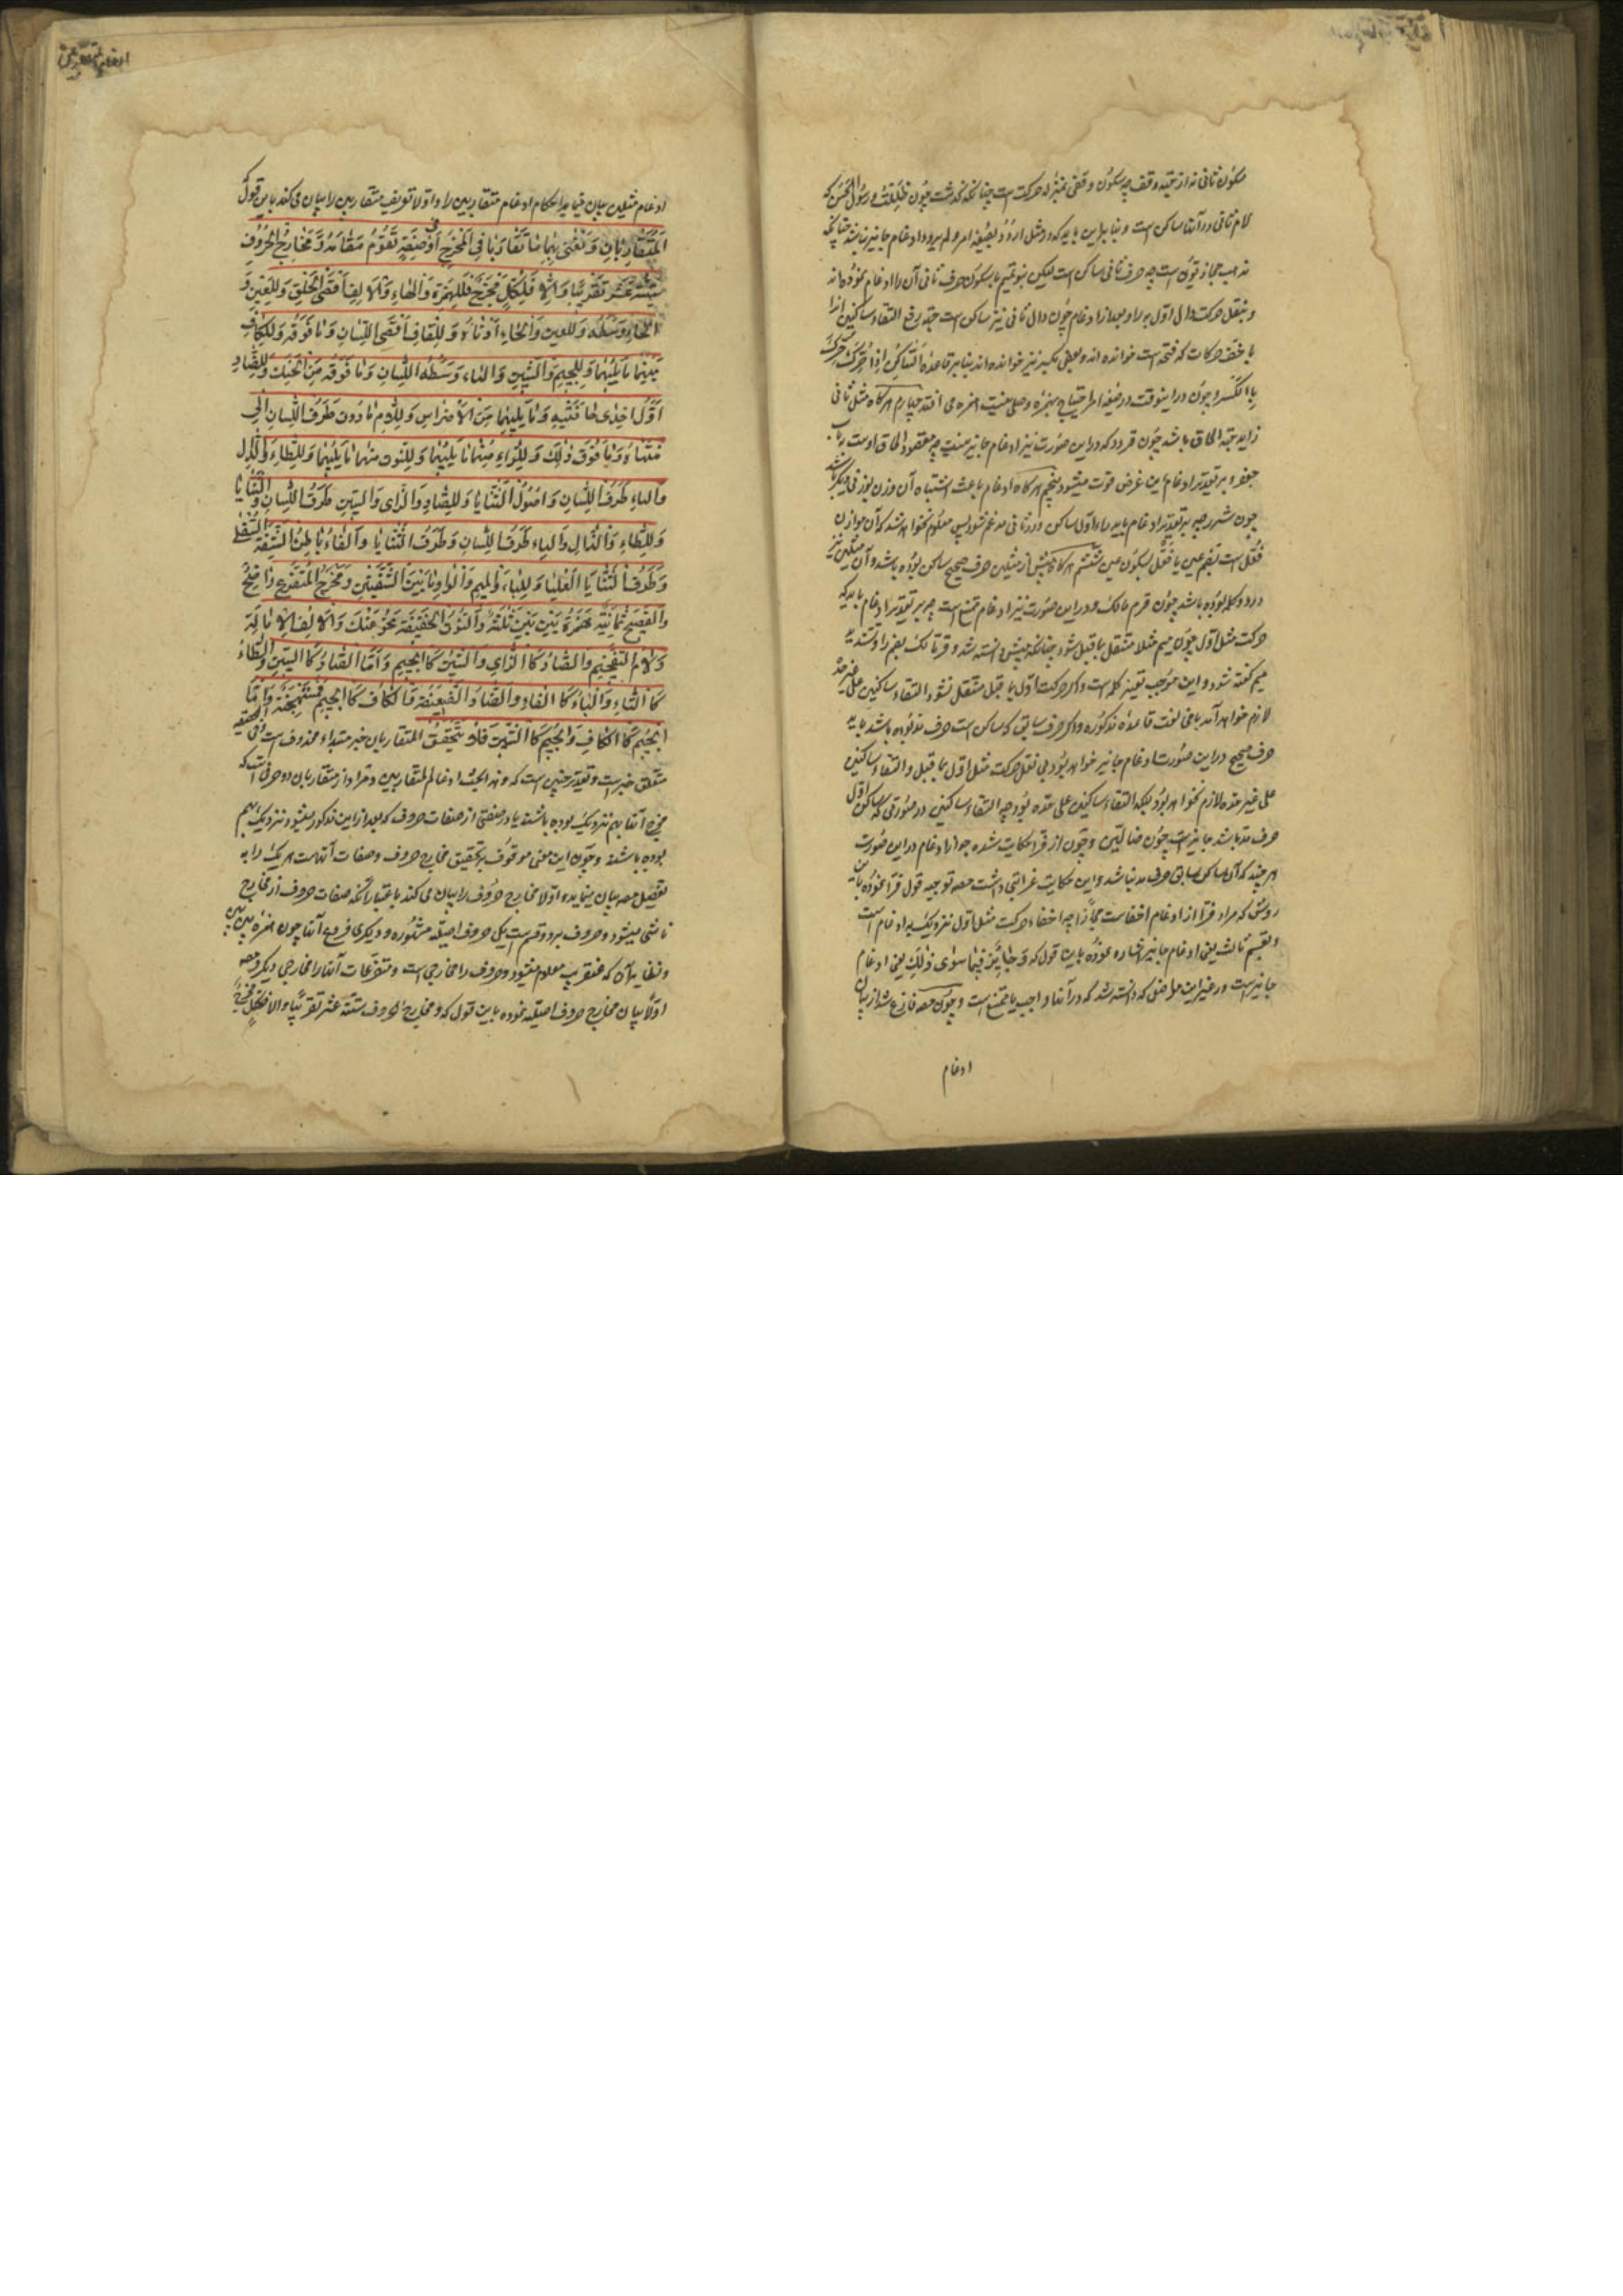 سکون ثانی نه از جهة وقف چه سکون وقفی بمنزله حرکت است چنانکه گذشت چون ظللت و رسول الحسن که
لام ثانی در آنها ساکن است و بنابراین باید که در مثل اردد بصیغه امر و لم یردد ادغام جایز نباشد چنانکه
مذهب حجازیون است چه حرف ثانی ساکن است لیکن بنو تمیم با سکون حرف ثانی آن را ادغام نموده‌اند
و بنقل حرکت دال اول به را و بعد از ادغام چون دال ثانی نیز ساکن است جهة رفع التقاء ساکنین آنرا
با خف حرکات که فتحه است خوانده‌اند و بعضی بکسر نیز خوانده‌اند بنا بر قاعده الساکن اذا حرک حرک
بالکسر و چون در اینوقت در صیغه امر احتیاج بهمزه وصلی نیست همزه می افتد چهارم هرگاه مثل ثانی
زاید جهة الحاق باشد چون قردد که در این صورت نیز ادغام جایز نیست چه مقصود الحاق اوست بباب
جعفر و بر تقدیر ادغام این غرض فوت میشود پنجم هرگاه ادغام باعث اشتباه آن وزن بوزنی دیگر باشد
چون سرر چه بر تقدیر ادغام باید راء اول ساکن و در ثانی مدغم شود پس معلوم نخواهد شد که آن موازن
فعل است بضم عین یا فعل بسکون عین ششم هرگاه پیش از مثلین حرف صحیح ساکن بوده باشد و آن مثلین نیز
در دو کلمه بوده باشد چون قرم مالک و در این صورت نیز ادغام ممتنع است چه بر تقدیر ادغام باید که
حرکت مثل اول چون میم مثلا منتقل بماقبل شود چنانکه پیش دانسته شد و قرمالک بضم را و تشدید
میم گفته شود و این موجب تغییر کلمه است و اگر حرکت اول بما قبل منتقل نشود التقاء ساکنین علی غیر حده
لازم خواهد آمد بامخالفت قاعده مذکوره و اگر حرف سابق که ساکن است حرف مد بوده باشد یا به
حرف صحیح در این صورت ادغام جایز خواهد بود بی نقل حرکت مثل اول بما قبل و التقاء ساکنین
علی غیر حده لازم نخواهد بود بلکه التقاء ساکنین علی حده بود چه التقاء ساکنین در صورتی که ساکن اول
حرف مد باشد جایز است چون ضالین و چون از قرا حکایت شده جواز ادغام در این صورت
هر چند که آن ساکن سابق حرف مد نباشد و این حکایت غرابتی داشت مصه توجیه قول قرا نموده باین
روش که مراد قرا از ادغام اخفاست مجازا چه اخفاء حرکت مثل اول نزدیک به ادغام است
و بقسم ثالث یعنی ادغام جایز اشاره نموده باین قول که و جایز فیما سوی ذلک یعنی ادغام
جایز است در غیر این مواضعی که دانسته شد که در آنها واجب یا ممتنع است و چون مصه فارغ شد از بیان
ادغام
ادغام مثلین بیان مینماید احکام ادغام متقاربین را و اولا تعریف متقاربین را بیان می کند باین قول که
المتقاربان و نعنی بهما ما تقاربا فی المخرج او فی صفة تقوم مقامه و مخارج الحروف
ستة عشر تقریبا و الا فلکل مخرج فللهمزة و الهاء و الالف اقصی الحلق و للعین و
الحاء وسطه و للغین و الخاء ادناه و للقاف اقصی اللسان و ما فوقه و للکاف
منهما ما یلیهما و للجیم و الشین و الیاء وسط اللسان و ما فوقه من الحنک و للضاد
اول احدی حافتیه و ما یلیهما من الاضراس و للام ما دون طرف اللسان الی
منتهاه و ما فوق ذلک و للراء منهما ما یلیهما و للنون منهما ما یلیهما و للطاء و الدال
و التاء طرف اللسان و اصول الثنایا و للصاد و الزای و السین طرف اللسان و الثنایا
و للظاء و الذال و الثاء طرف اللسان و طرف الثنایا و الفاء باطن الشفة السفلی
و طرف الثنایا العلیا و للباء و المیم و الواو ما بین الشفتین و مخرج المتفرع واضح
و الفصیح ثمانیة همزة بین بین ثلثة و النون الخفیفة نحو عنک و الالف الامالة
و لام التفخیم و الصاد کالزای و الشین کالجیم و اما الصاد کالسین و الطاء
کالتاء و الباء کالفاء و الضاد الضعیفة و الکاف کالجیم فمستهجنة و اما
الجیم کالکاف و الجیم کالشین فلا یتحقق المتقاربان خبر مبتداء محذوف است
متعلق خبر است و تقدیر چنین است که و هذا لبحث ادغام المتقاربین و مراد از متقاربان دو حرفی است که
مخرج آنها بهم نزدیک بوده باشد یا در صفتی از صفات حروف که بعد از این مذکور میشود نزدیک بهم
بوده باشند و چون این معنی موقوف بر تحقیق مخارج حروف و صفات آنهاست هر یک را به
تفصیل مصه بیان مینماید و اولا مخارج حروف را بیان می کند باعتبار آنکه صفات حروف از مخارج
ناشی میشود و حروف بر دو قسم است یکی حروف اصلیه مشهوره و دیگری فروع آنها چون همزه بین بین
و نظایر آن که عنقریب معلوم میشود و حروف را مخارجی است و متفرعات آنها را مخارجی دیگر و مصه
اولا بیان مخارج حروف اصلیه نموده باین قول که و مخارج الحروف ستة عشر تقریبا و الا فلکل مخرج